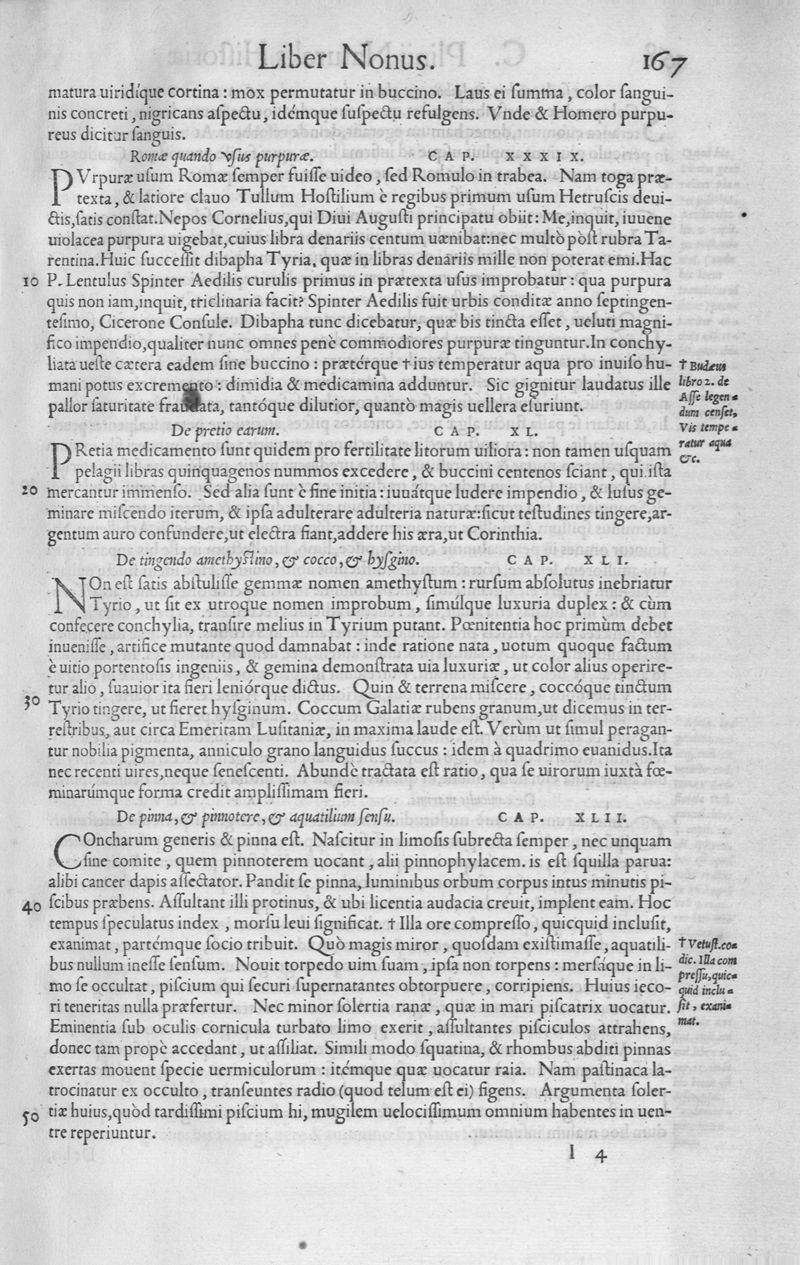 Liber Nonus. 167
matura uiridíque cortina : mox permutatur in buccino. Laus ei ſumma, color ſangui-
nis concreti, nigricans aſpectu, idémque ſuſpectu refulgens. Vnde & Homero purpu-
reus dicitur ſanguis.
Romæ quando vſus purpuræ. CAP. XXXIX.
PVrpuræ uſum Romæ ſemper fuiſſe uideo, ſed Romulo in trabea. Nam toga præ-
texta, & latiore clauo Tullum Hoſtilium è regibus primum uſum Hetruſcis deui-
ctis, ſatis conſtat. Nepos Cornelius, qui Diui Auguſti principatu obiit: Me, inquit, iuuene
uiolacea purpura uigebat, cuius libra denariis centum uænibat: nec multò pòſt rubra Ta-
rentina. Huic ſucceſſit dibapha Tyria, quæ in libras denariis mille non poterat emi. Hac
10 P. Lentulus Spinter Aedilis curulis primus in prætexta uſus improbatur : qua purpura
quis non iam, inquit, triclinaria facit? Spinter Aedilis fuit urbis conditæ anno ſeptingen-
teſimo, Cicerone Conſule. Dibapha tunc dicebatur, quæ bis tincta eſſet, ueluti magni-
fico impendio, qualiter nunc omnes penè commodiores purpuræ tinguntur. In conchy-
liata ueſte cætera eadem ſine buccino : prætérque † ius temperatur aqua pro inuiſo hu-
† Budæus
mani potus excremento : dimidia & medicamina adduntur. Sic gignitur laudatus ille
libro 2. de
pallor ſaturitate fraudata, tantóque dilutior, quantò magis uellera eſuriunt.
Aſſe legen-
dum cenſet,
De pretio earum. CAP. XL.
Vis tempe-
PRetia medicamento ſunt quidem pro fertilitate litorum uiliora : non tamen uſquam
ratur aqua
&c.
pelagii libras quinquagenos nummos excedere, & buccini centenos ſciant, qui iſta
20 mercantur immenſo. Sed alia ſunt è fine initia : iuuátque ludere impendio, & luſus ge-
minare miſcendo iterum, & ipſa adulterare adulteria naturæ: ſicut teſtudines tingere, ar-
gentum auro confundere, ut electra fiant, addere his æra, ut Corinthia.
De tingendo amethyſtino, & cocco, & hyſgino. CAP. XLI.
NOn eſt ſatis abſtuliſſe gemmæ nomen amethyſtum : rurſum abſolutus inebriatur
Tyrio, ut ſit ex utroque nomen improbum, ſimúlque luxuria duplex : & cùm
confecere conchylia, tranſire melius in Tyrium putant. Pœnitentia hoc primùm debet
inueniſſe, artifice mutante quod damnabat : inde ratione nata, uotum quoque factum
è uitio portentoſis ingeniis, & gemina demonſtrata uia luxuriæ, ut color alius operire-
tur alio, ſuauior ita fieri leniórque dictus. Quin & terrena miſcere, coccóque tinctum
30 Tyrio tingere, ut fieret hyſginum. Coccum Galatiæ rubens granum, ut dicemus in ter-
reſtribus, aut circa Emeritam Luſitaniæ, in maxima laude eſt. Verùm ut ſimul peragan-
tur nobilia pigmenta, anniculo grano languidus ſuccus : idem à quadrimo euanidus. Ita
nec recenti uires, neque ſeneſcenti. Abundè tractata eſt ratio, qua ſe uirorum iuxtà fœ-
minarúmque forma credit ampliſſimam fieri.
De pinna, & pinnotere, & aquatilium ſenſu. CAP. XLII.
COncharum generis & pinna eſt. Naſcitur in limoſis ſubrecta ſemper, nec unquam
ſine comite, quem pinnoterem uocant, alii pinnophylacem. is eſt ſquilla parua:
alibi cancer dapis aſſectator. Pandit ſe pinna, luminibus orbum corpus intus minutis pi-
40 ſcibus præbens. Aſſultant illi protinus, & ubi licentia audacia creuit, implent eam. Hoc
tempus ſpeculatus index, morſu leui ſignificat. † Illa ore compreſſo, quicquid incluſit,
exanimat, partémque ſocio tribuit. Quò magis miror, quoſdam exiſtimaſſe, aquatili-
† Vetuſt. co-
bus nullum ineſſe ſenſum. Nouit torpedo uim ſuam, ipſa non torpens : merſáque in li-
dic. Illa com
preſſu, quic-
mo ſe occultat, piſcium qui ſecuri ſupernatantes obtorpuere, corripiens. Huius ieco-
quid inclu-
ri teneritas nulla præfertur. Nec minor ſolertia ranæ, quæ in mari piſcatrix uocatur.
ſit, exani-
mat.
Eminentia ſub oculis cornicula turbato limo exerit, aſſultantes piſciculos attrahens,
donec tam propè accedant, ut aſſiliat. Simili modo ſquatina, & rhombus abditi pinnas
exertas mouent ſpecie uermiculorum : itémque quæ uocatur raia. Nam paſtinaca la-
trocinatur ex occulto, tranſeuntes radio (quod telum eſt ei) figens. Argumenta ſoler-
50 tiæ huius, quòd tardiſſimi piſcium hi, mugilem uelociſſimum omnium habentes in uen-
tre reperiuntur.
l 4